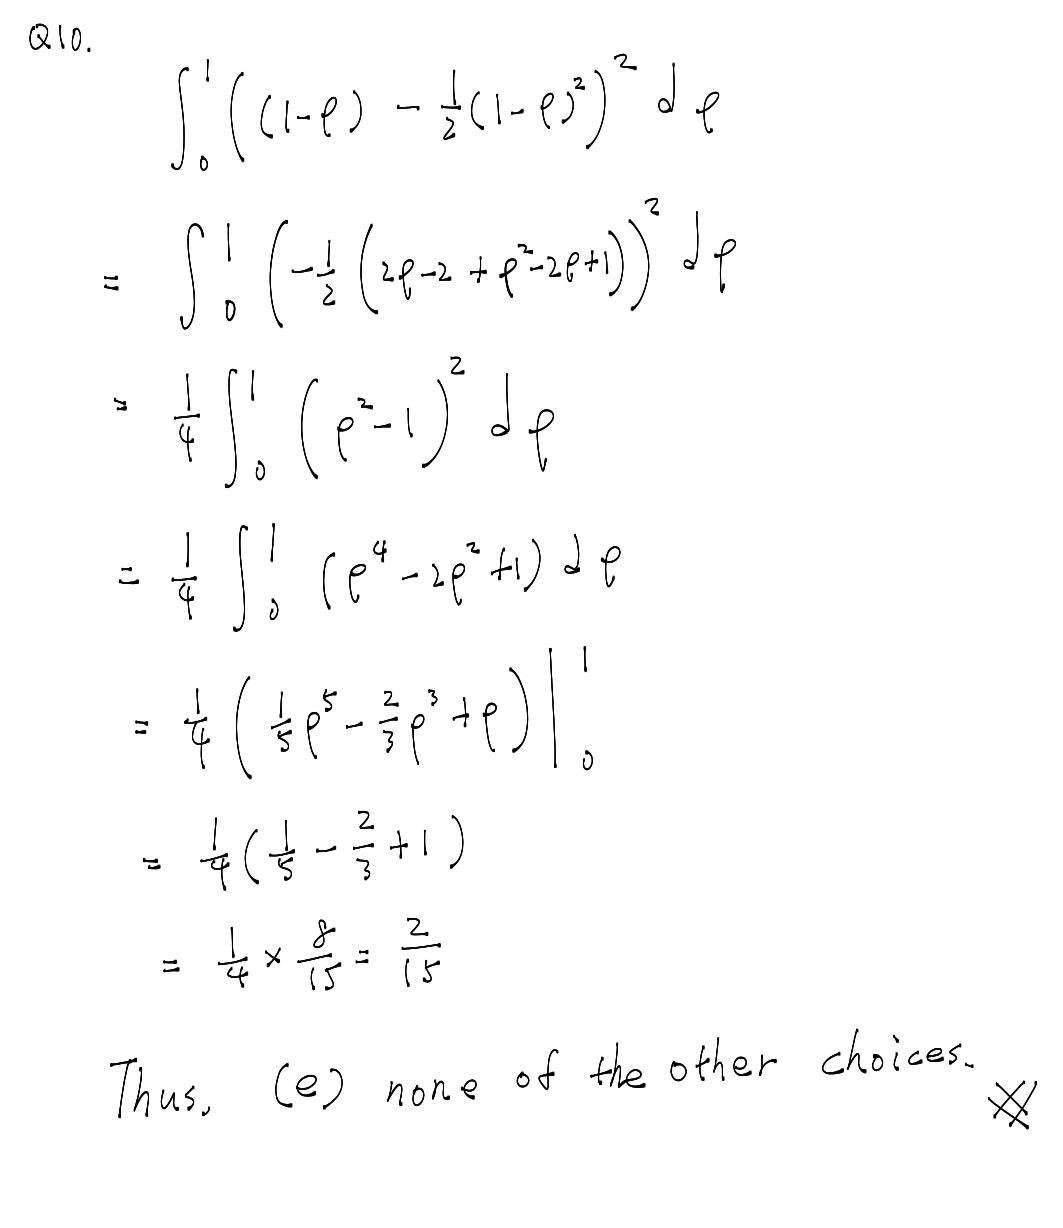 Q10.
∫₀¹ ((1-ρ) - ½(1-ρ)²)² dρ
= ∫₀¹ (-½ (2ρ-2 + ρ²-2ρ+1))² dρ
= ¼ ∫₀¹ (ρ²-1)² dρ
= ¼ ∫₀¹ (ρ⁴-2ρ²+1) dρ
= ¼ (⅕ρ⁵ - ⅔ρ³ + ρ) |₀¹
= ¼ (⅕ - ⅔ + 1)
= ¼ × 8/15 = 2/15
Thus, (e) none of the other choices.